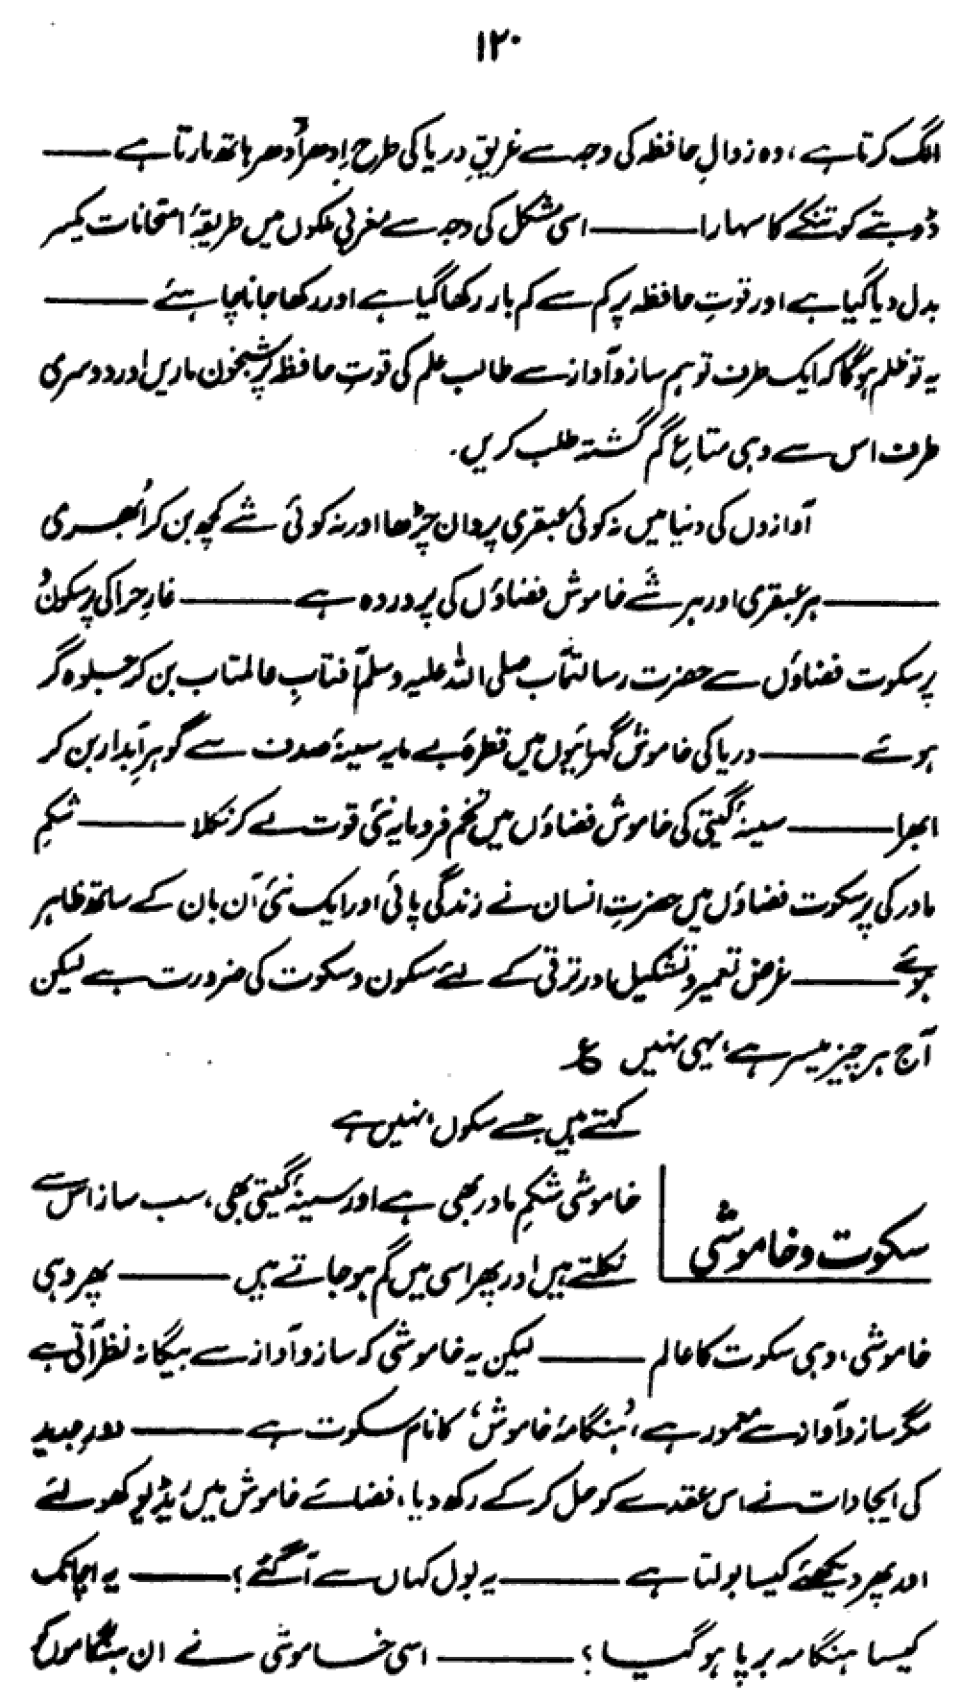 ۱۲۰
الگ کرتا ہے، وہ زوالِ حافظہ کی وجہ سے غریقِ دریا کی طرح اِدھر اُدھر ہاتھ مارتا ہے ——
ڈوبتے کو تنکے کا سہارا —— اسی مشکل کی وجہ سے مغربی ملکوں میں طریقۂ امتحانات یکسر
بدل دیا گیا ہے اور قوتِ حافظہ پر کم سے کم بار رکھا گیا ہے اور رکھا جانا چاہئے ——
یہ تو ظلم ہوگا کہ ایک طرف تو ہم ساز و آواز سے طالب علم کی قوتِ حافظہ پر شبخون ماریں اور دوسری
طرف اس سے وہی متاعِ گم گشتہ طلب کریں۔
آوازوں کی دنیا میں نہ کوئی عبقری پروان چڑھا اور نہ کوئی شے کچھ بن کر اُبھری
—— ہر عبقری اور ہر شے خاموش فضاؤں کی پروردہ ہے —— غارِ حرا کی پرسکون و
پرسکوت فضاؤں سے حضرت رسالتمآب صلی اللہ علیہ وسلم آفتابِ عالمتاب بن کر جلوہ گر
ہوئے —— دریا کی خاموش گہرائیوں میں قطرۂ بے مایہ سینۂ صدف سے گوہرِ آبدار بن کر
ابھرا —— سینۂ گیتی کی خاموش فضاؤں میں تخم فرومایہ نئی قوت لے کر نکلا —— شکمِ
مادر کی پرسکوت فضاؤں میں حضرتِ انسان نے زندگی پائی اور ایک نئی آن بان کے ساتھ ظاہر
ہوئے —— غرض تعمیر و تشکیل اور ترقی کے لئے سکون و سکوت کی ضرورت ہے لیکن
آج ہر چیز میسر ہے، یہی نہیں ع
کہتے ہیں جسے سکوں، نہیں ہے
سکوت و خاموشی
خاموشی شکمِ مادر بھی ہے اور سینۂ گیتی بھی، سب ساز اس سے
نکلتے ہیں اور پھر اسی میں گم ہو جاتے ہیں —— پھر وہی
خاموشی، وہی سکوت کا عالم —— لیکن یہ خاموشی کہ ساز و آواز سے بیگانہ نظر آتی ہے
مگر ساز و آواز سے معمور ہے، ’ہنگامۂ خاموش‘ کا نام سکوت ہے —— دورِ جدید
کی ایجادات نے اس عقدے کو حل کر کے رکھ دیا، فضائے خاموش میں ریڈیو کھولئے
اور پھر دیکھئے کیسا بولتا ہے —— یہ بول کہاں سے آ گئے؟ —— یہ اچانک
کیسا ہنگامہ برپا ہو گیا؟ —— اسی خاموشی نے ان ہنگاموں کو